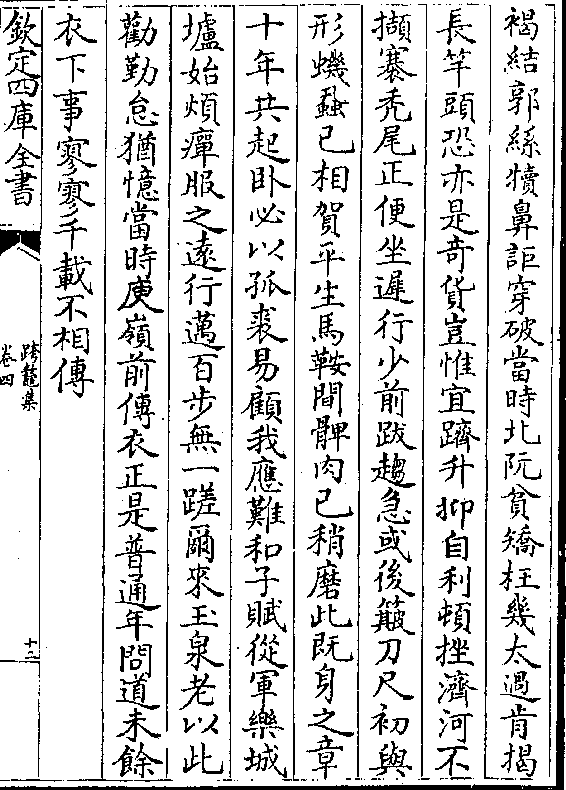 褐結郭絲犢鼻詎穿破當時北阮貧矯枉幾太過肯揭
長竿頭恐亦是奇貨豈惟宜躋升抑自利頓挫濟河不
擷褰禿尾正便坐遲行少前跋趨急或後簸刀尺初與
形蟣蝨已相賀平生馬鞍間髀肉已稍磨此既身之章
十年共起卧必以孤裘易顧我應難和子賦從軍樂城
壚始煩癉服之遠行邁百步無一蹉爾來玉泉老以此
勸勤怠猶憶當時庾嶺前傳衣正是普通年問道未餘
衣下事寥寥千載不相傳
欽定四庫全書
跨鼇集
卷四
十二